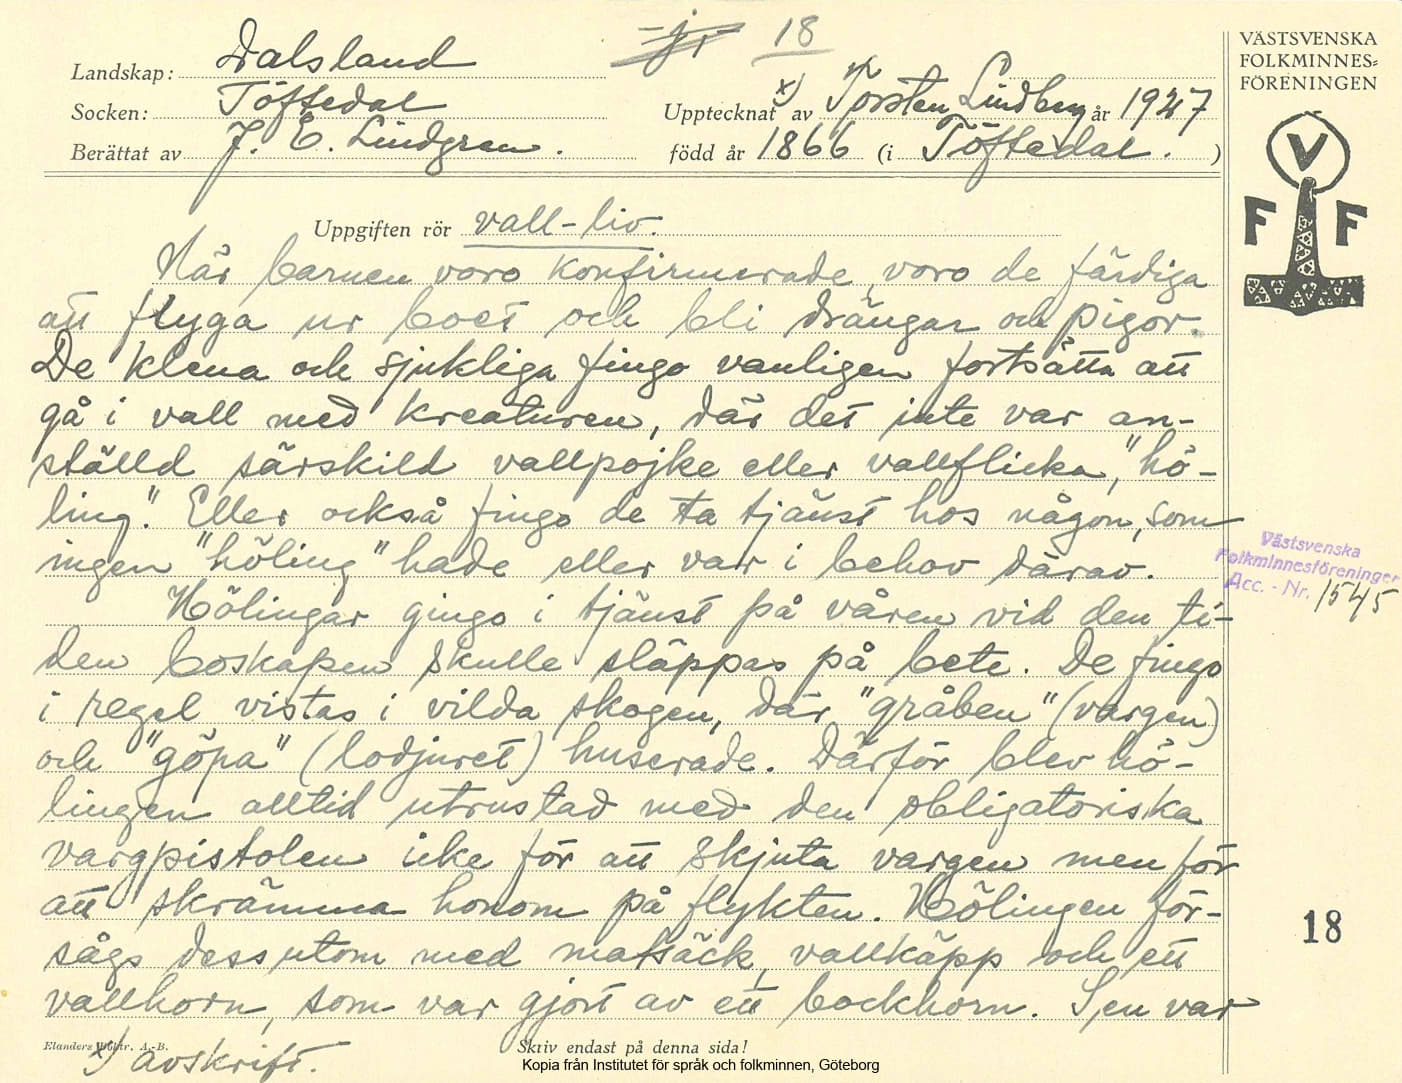 Landskap: Dalsland
18
Socken: Töftedal
x) Upptecknat av Torsten Lindberg år 1927
Berättat av J. E. Lindgren.
född år 1866 (i Töftedal.)
VÄSTSVENSKA
FOLKMINNES=
FÖRENINGEN
V
F F
Uppgiften rör vall-liv.
När barnen voro konfirmerade, voro de färdiga
att flyga ur boet och bli drängar och pigor.
De klena och sjukliga fingo vanligen fortsätta att
gå i vall med kreaturen, där det inte var an-
ställd särskild vallpojke eller vallflicka, "hö-
ling". Eller också fingo de ta tjänst hos någon, som
ingen "höling" hade eller var i behov därav.
Hölingar gingo i tjänst på våren vid den ti-
den boskapen skulle släppas på bete. De fingo
i regel vistas i vilda skogen, där "gråben" (vargen)
och "göpa" (lodjuret) huserade. Därför blev hö-
lingen alltid utrustad med den obligatoriska
vargpistolen icke för att skjuta vargen men för
att skrämma honom på flykten. Hölingen för-
sågs dessutom med matsäck, vallkäpp och ett
vallhorn, som var gjort av ett bockhorn. Sen var
Västsvenska
Folkminnesföreningen
Acc. - Nr. 1545
18
Elanders Boktr. A.-B.
x) avskrift.
Skriv endast på denna sida!
Kopia från Institutet för språk och folkminnen, Göteborg